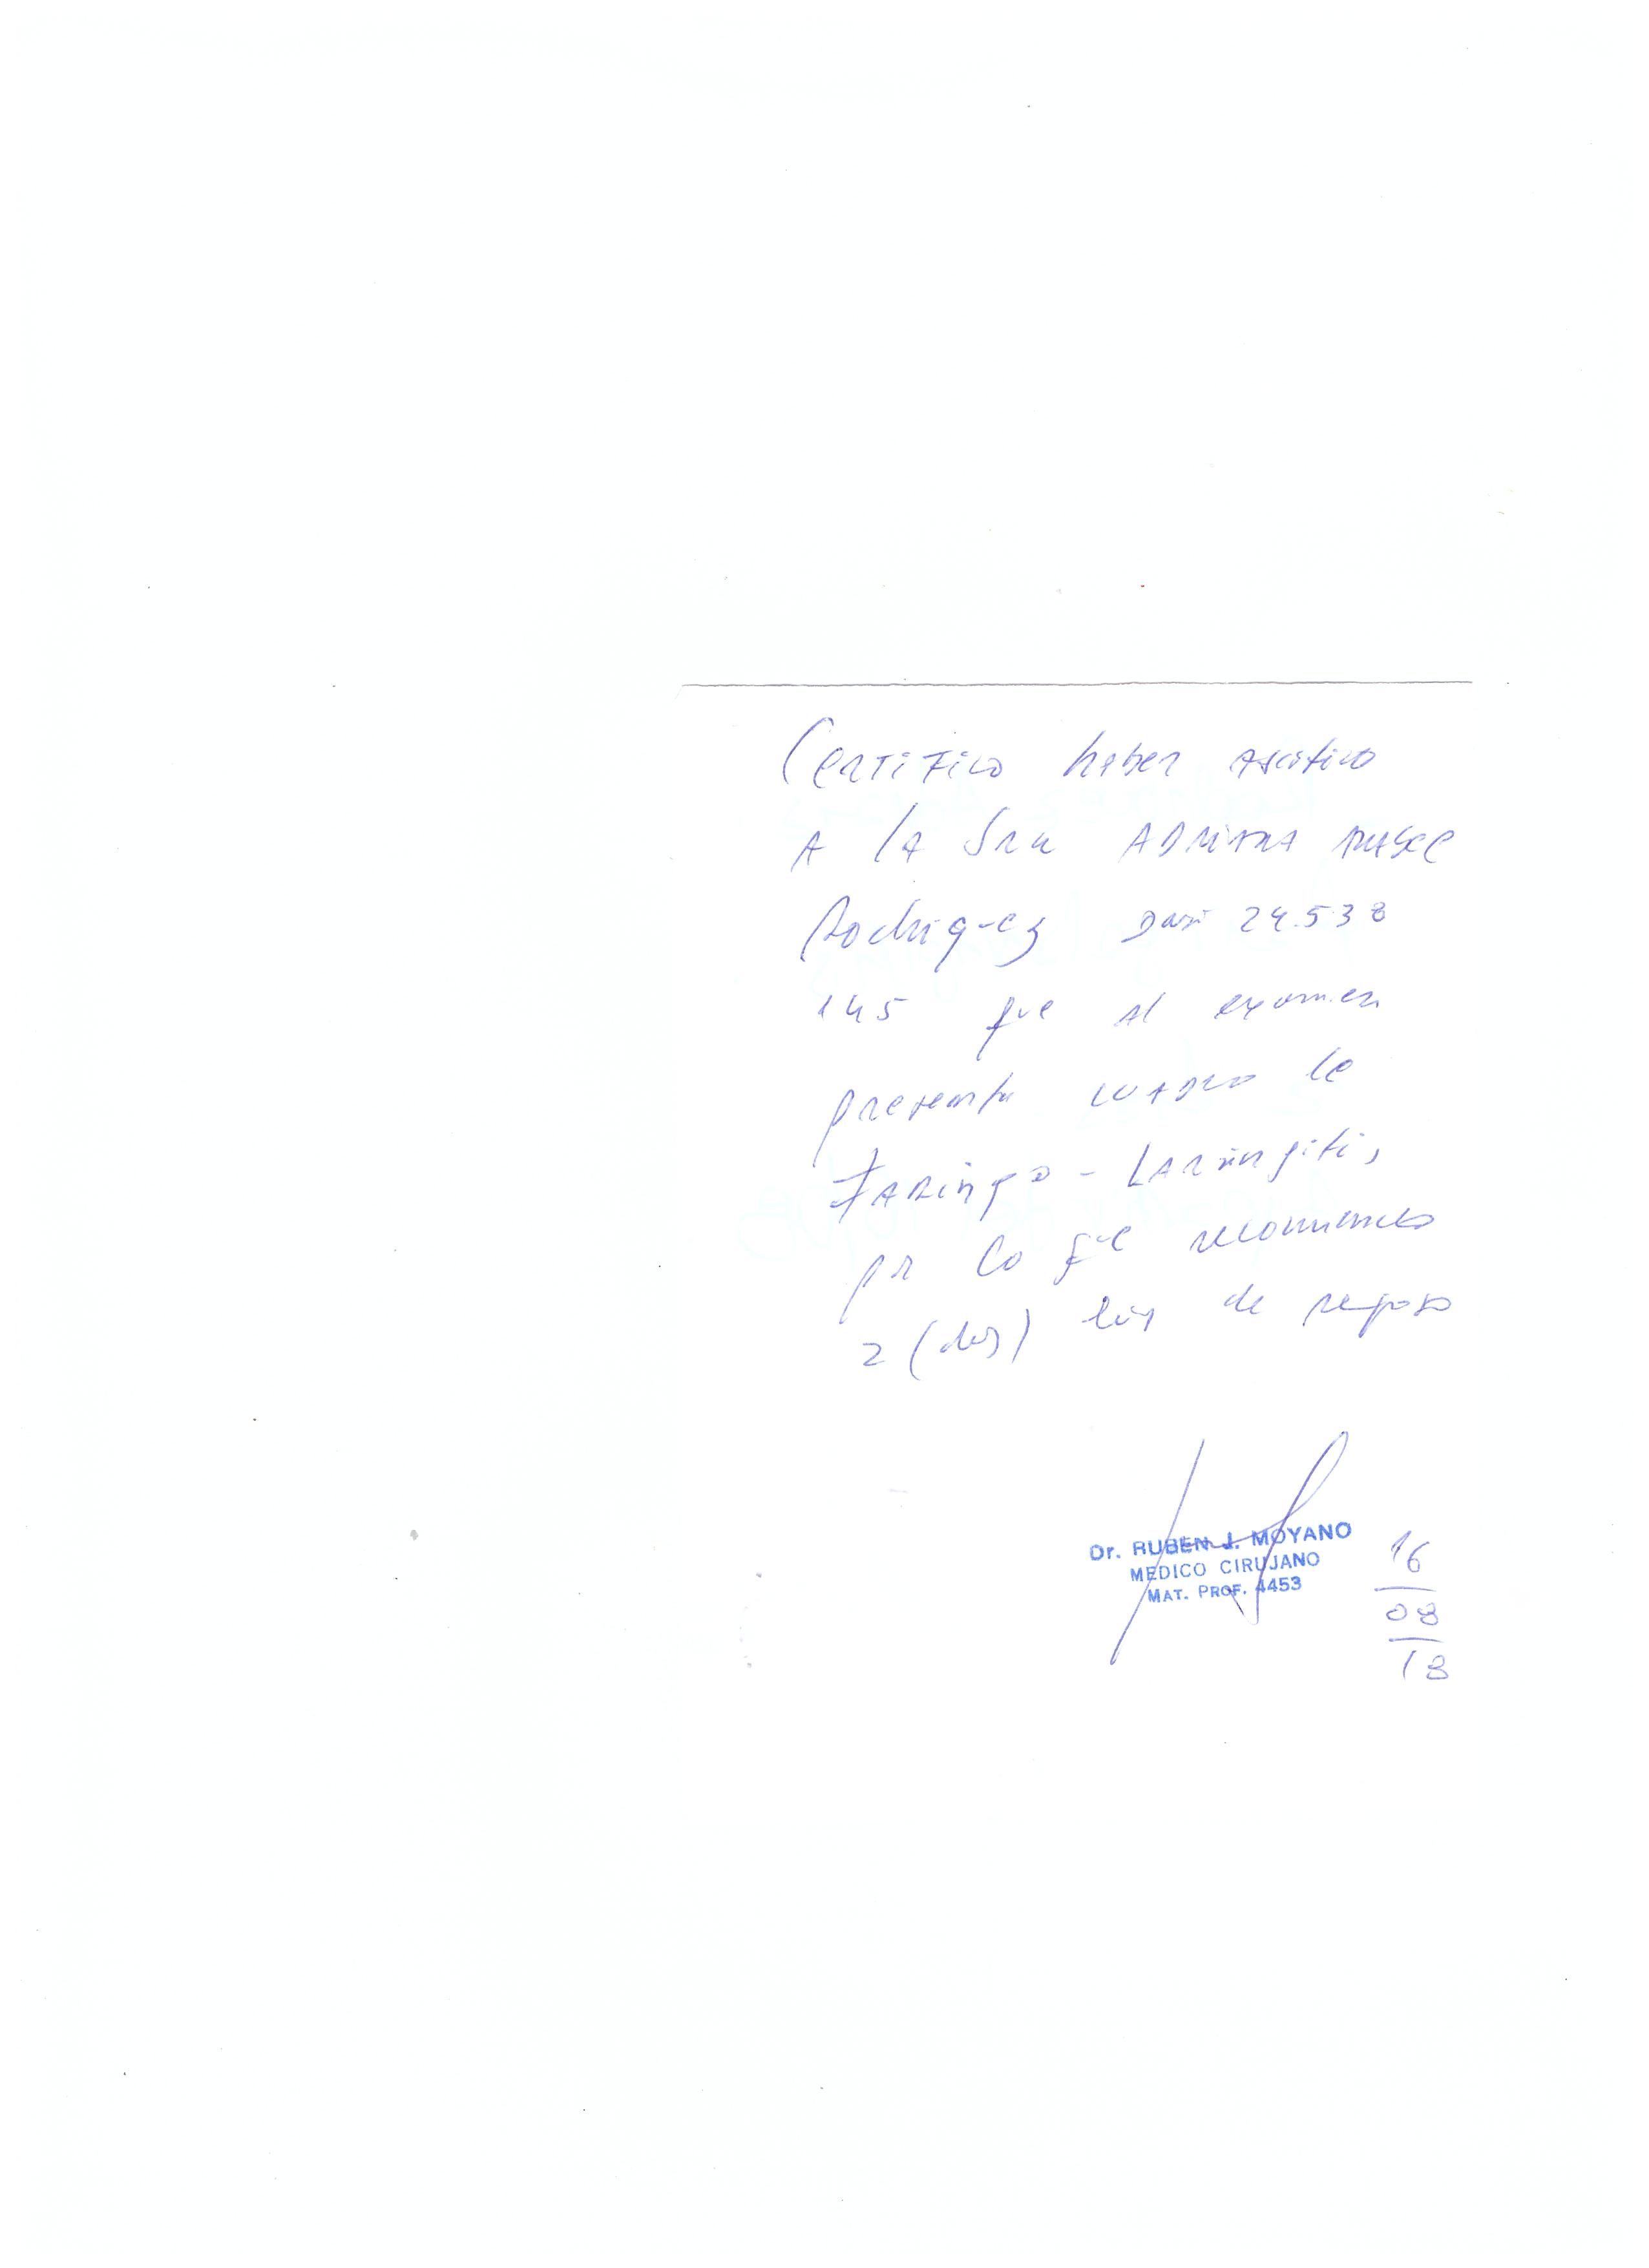 Certifico haber asistido
A la Sra ADRIANA
Rodriguez DNI 24.538
145 que al examen
presenta cuadro de
Faringo - Laringitis
por lo que recomiendo
2 (dos) días de reposo
Dr. RUBEN J. MOYANO
MEDICO CIRUJANO
MAT. PROF. 4453
16
08
18